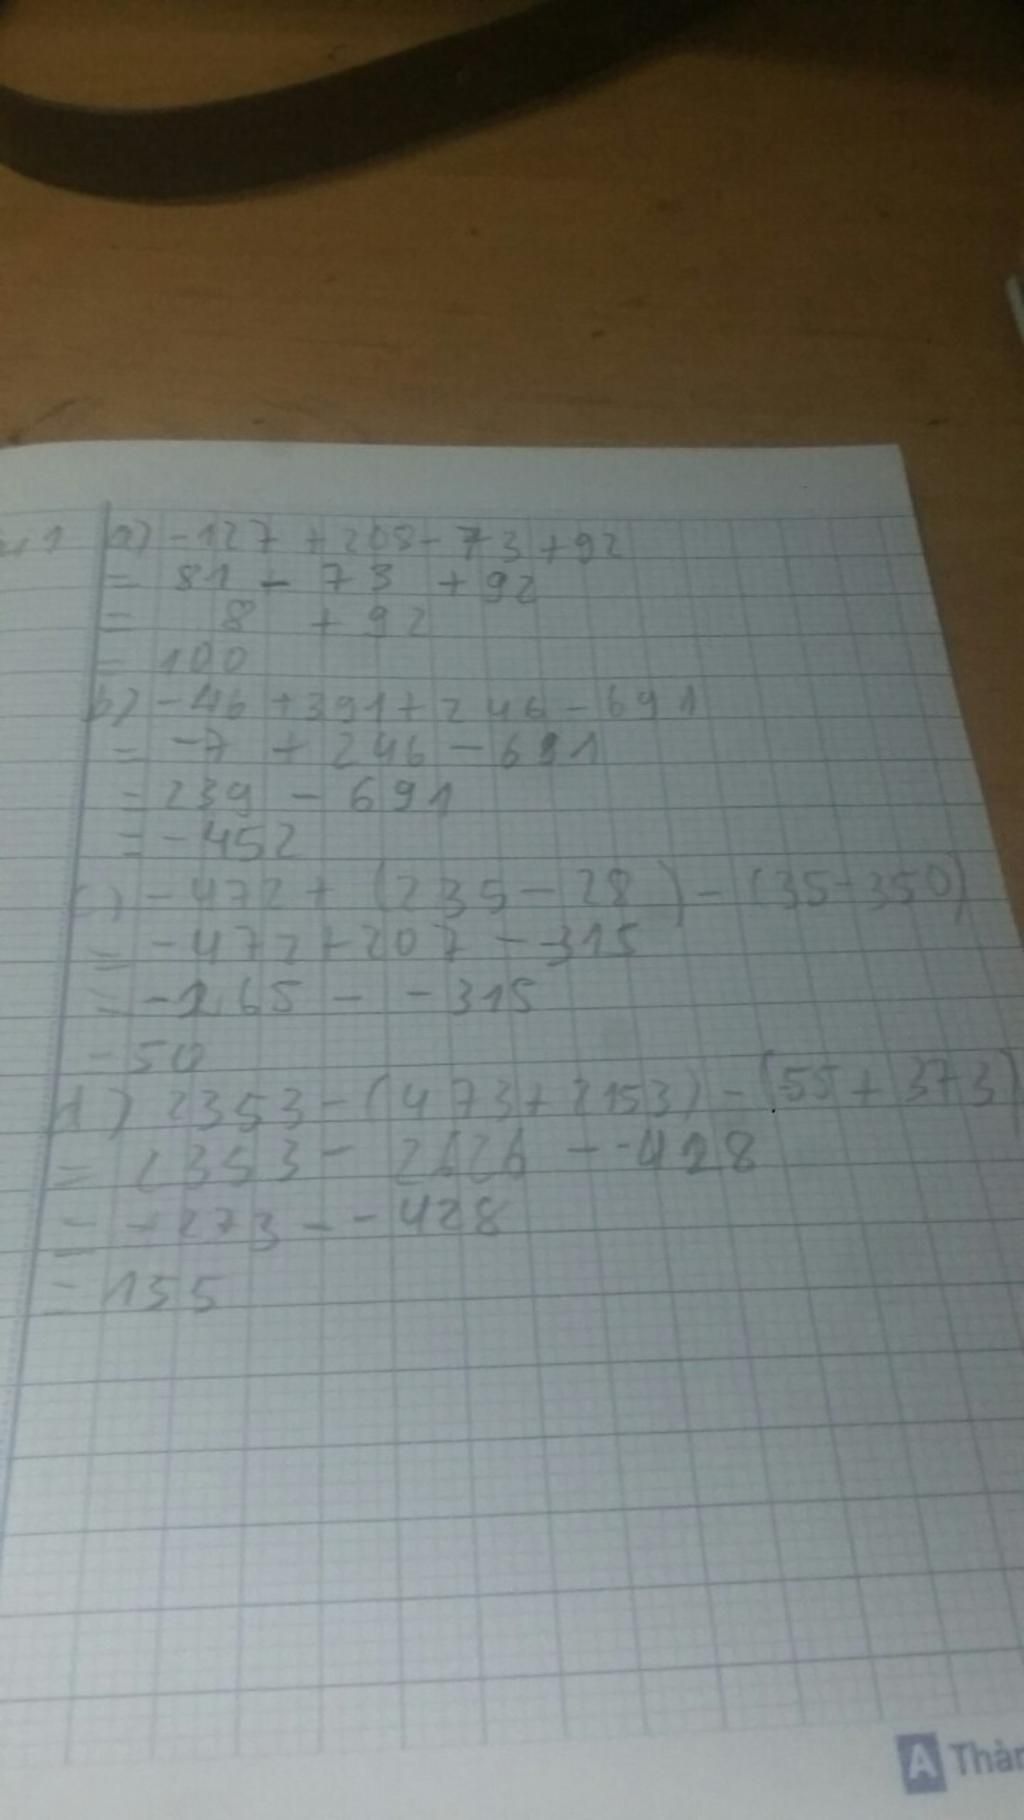 a) -127 + 208 - 73 + 92
= 81 - 73 + 92
= 8 + 92
= 100
b) -46 + 391 + 246 - 691
= -7 + 246 - 691
= 239 - 691
= -452
c) -472 + (235 - 28) - (35 - 350)
= -472 + 207 - -315
= -265 - -315
= 50
d) 2353 - (473 + 2153) - (55 + 373)
= 2353 - 2626 - -428
= -273 - -428
= 155
A Thàn